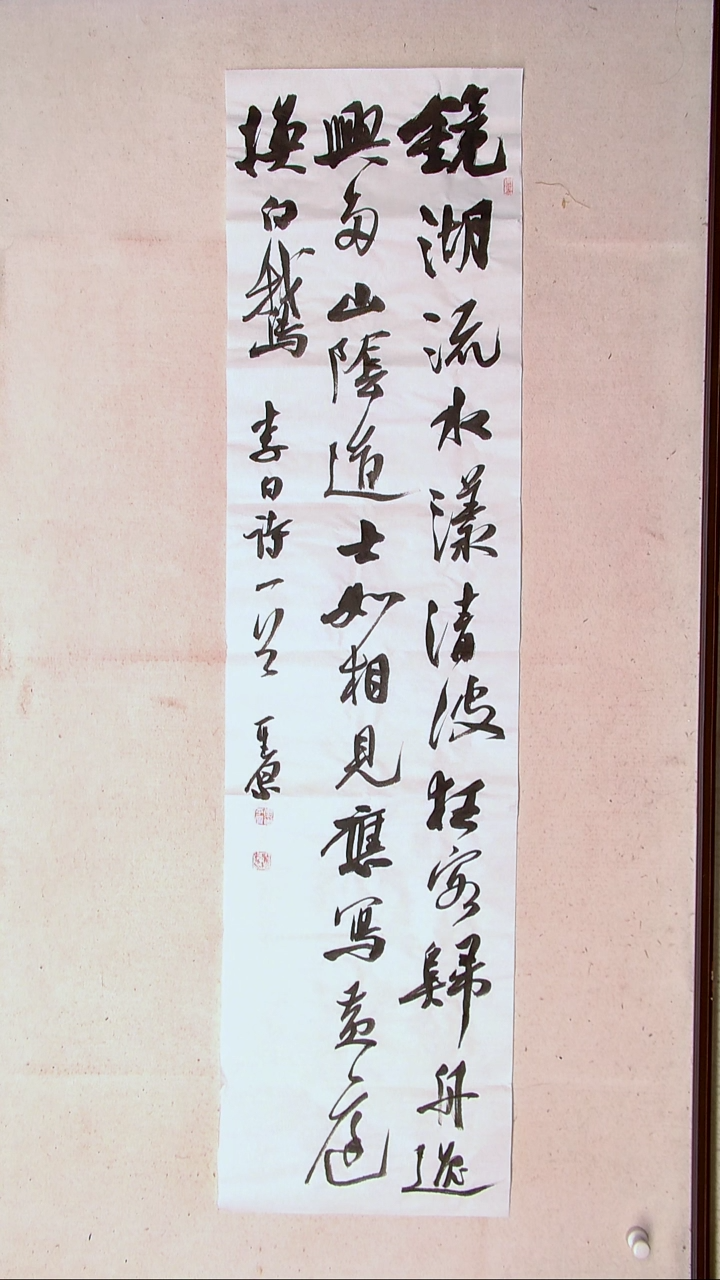 鏡湖流水漾清波狂客歸舟逸
興多山陰道士如相見應寫黃庭
換白鵝 李白詩一首